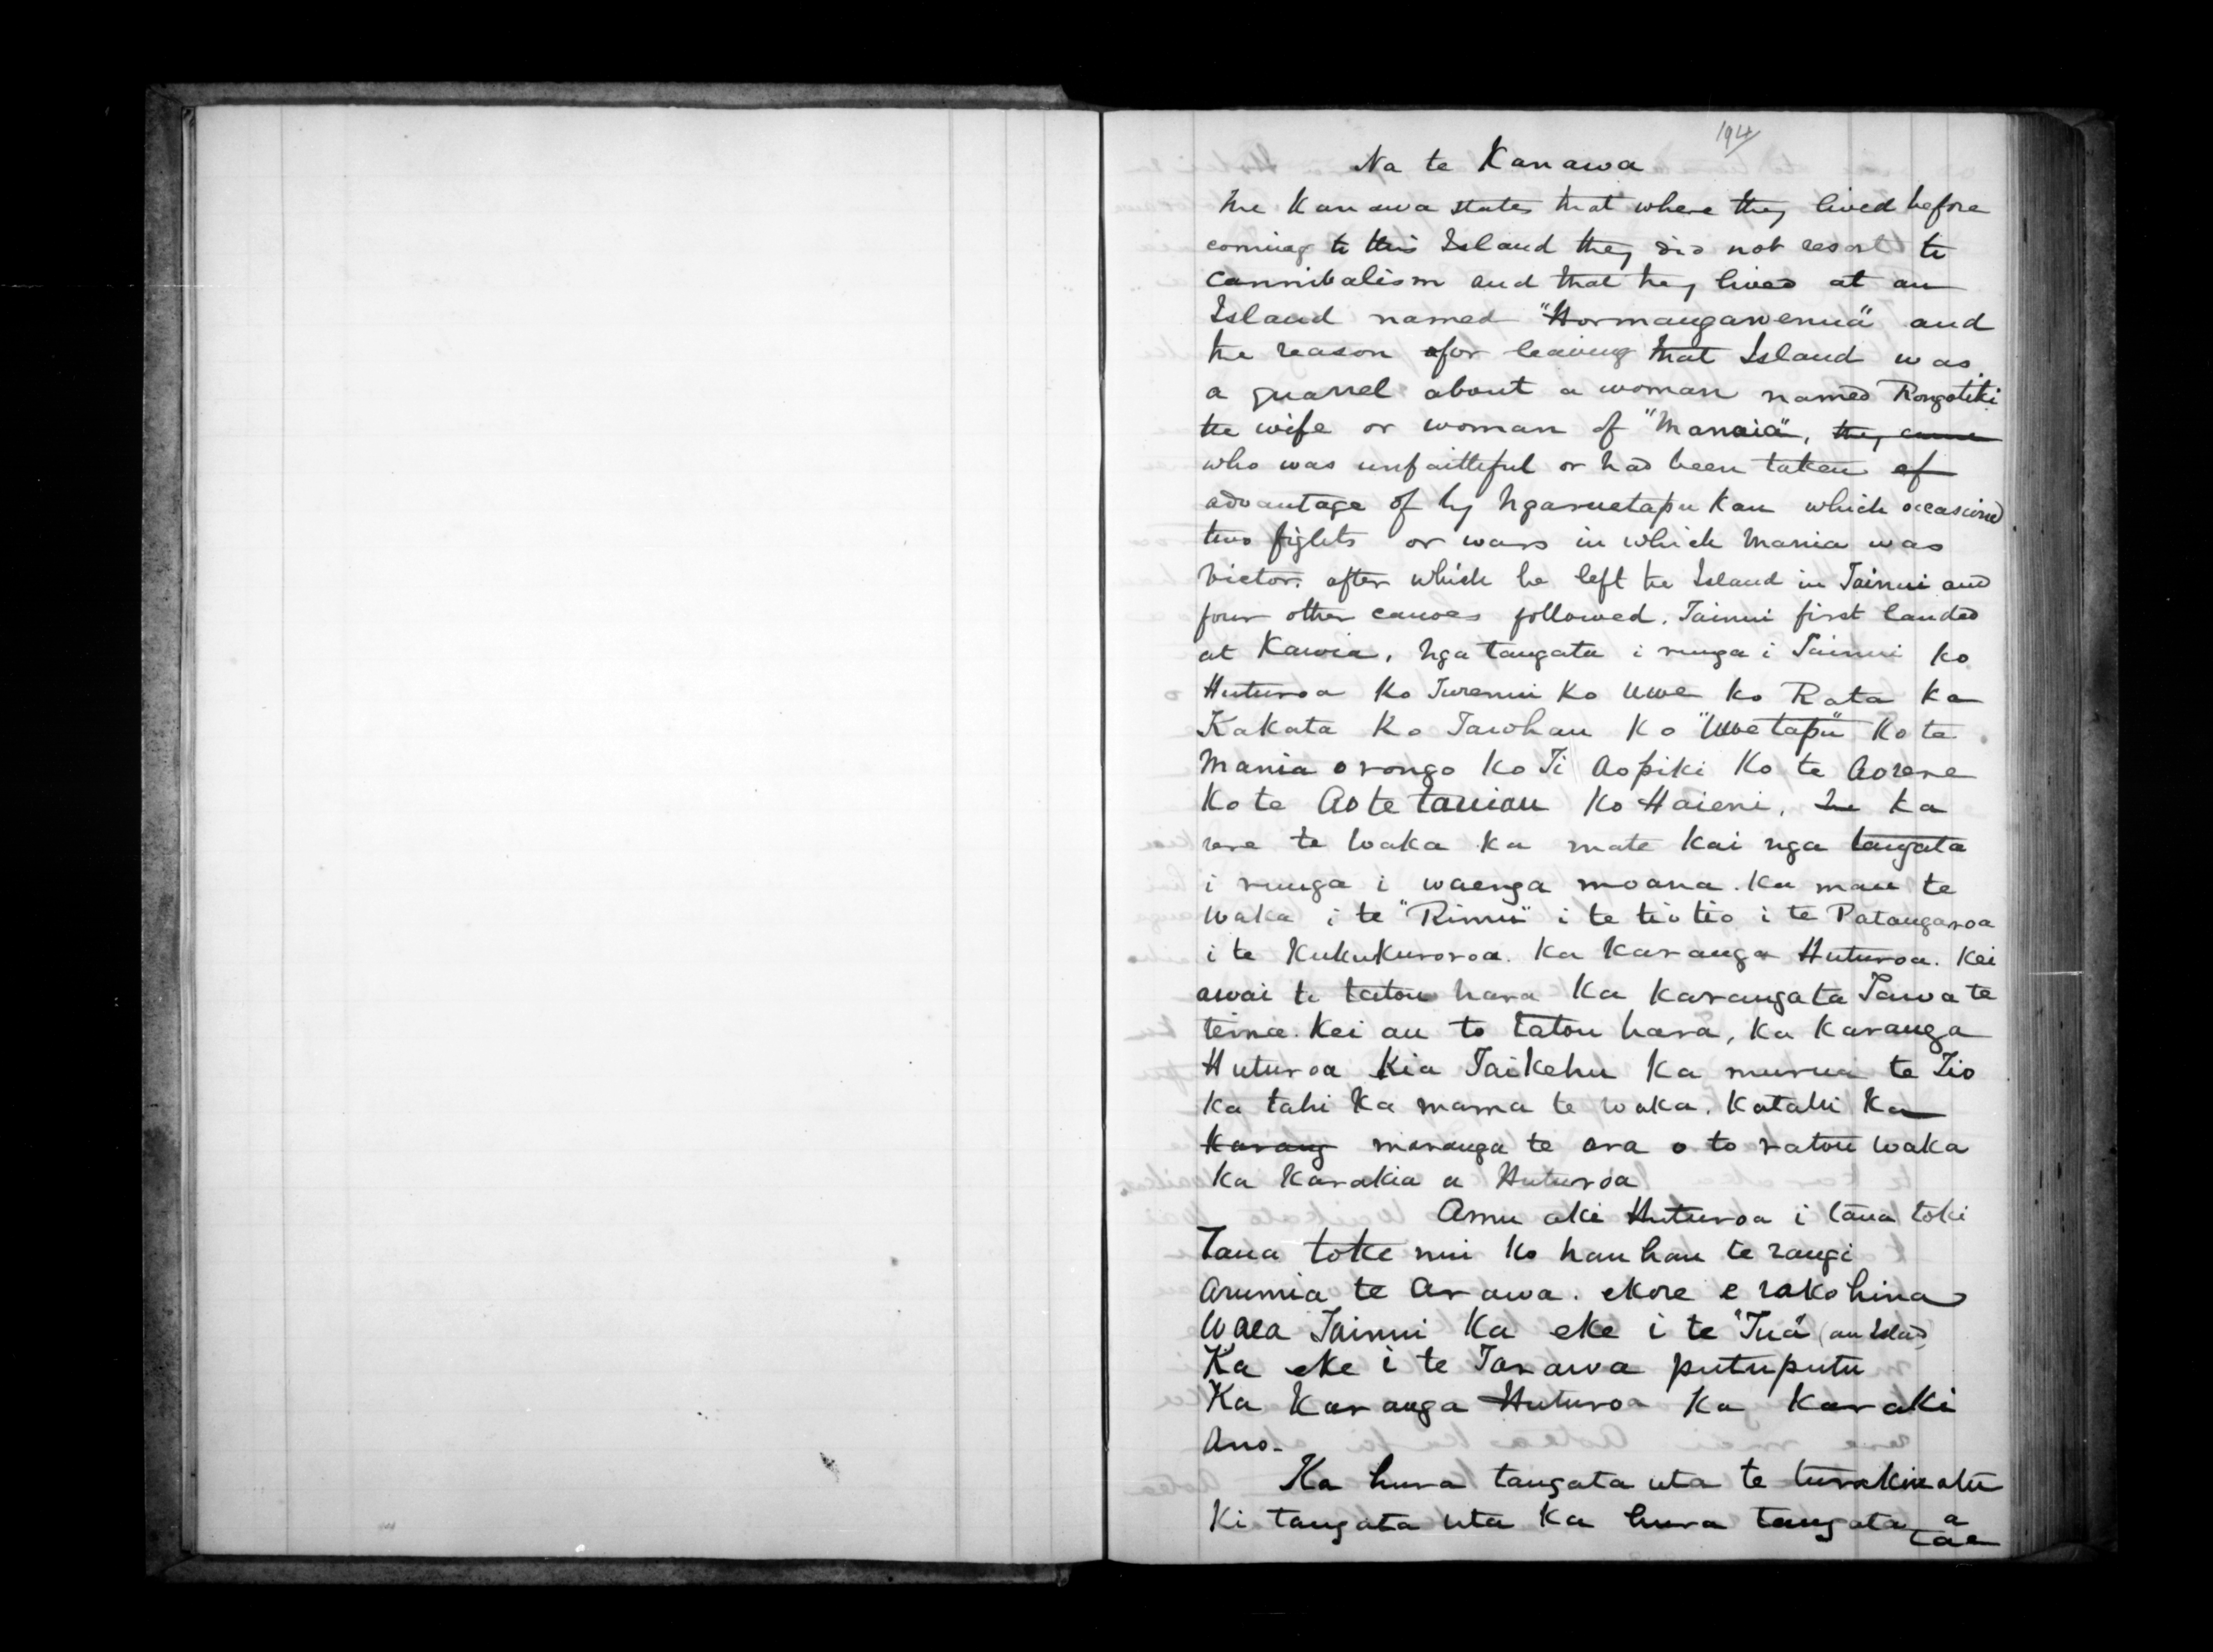 194
Na te Kanawa
The Kanawa states that where they lived before
coming to this Island they did not resort to
cannibalism and that they lived at an
Island named "Hormangawenua" and
the reason for leaving that Island was
a quarrel about a woman named Rongotiki
the wife or woman of "Manaia", they came
who was unfaithful or had been taken of
advantage of by Ngaruetapu Kau which occasioned
two fights or wars in which Mania was
Victor. after which he left the Island in Tainui and
four other canoes followed. Tainui first landed
at Kawia, nga tangata i runga i Tainui ko
Huturoa Ko Turenui Ko Uwe ko Rata ka
Kakata Ko Tawhau Ko "Uwe tapu" Ko te
Mania orongo Ko Ti Aopiki Ko te Aorere
Ko te Ao te tauiou Ko Haieni, ka
rere te waka ka mate kai nga tangata
i runga i waenga moana. Ka mau te
Waka i te "Rimu" i te tio tio i te Patangaroa
i te Kukukuroroa. Ka Karanga Huturoa. Kei
awai te tatou hara Ka Karangata Tawa te
teina. Kei au to tatou hara, Ka Karanga
Huturoa Kia Taikehu Ka murua te Tio
Ka tahi Ka mama te waka. Katahi Ka
Karang maranga te ara o to ratou waka
Ka Karakia a Huturoa
Amu ake Huturoa i tana toki
Tana toke nui Ko hau hau te rangi
Arumia te Arawa. ekore e rakohina
Waea Tainui Ka eke i te "Tua" (an Island)
Ka eke i te Tarawa putuputu
Ka Karanga Huturoa Ka Karaki
Ano.
Ka hura tangata uta te turakina atu
Ki tangata uta Ka hura tangata a
tae